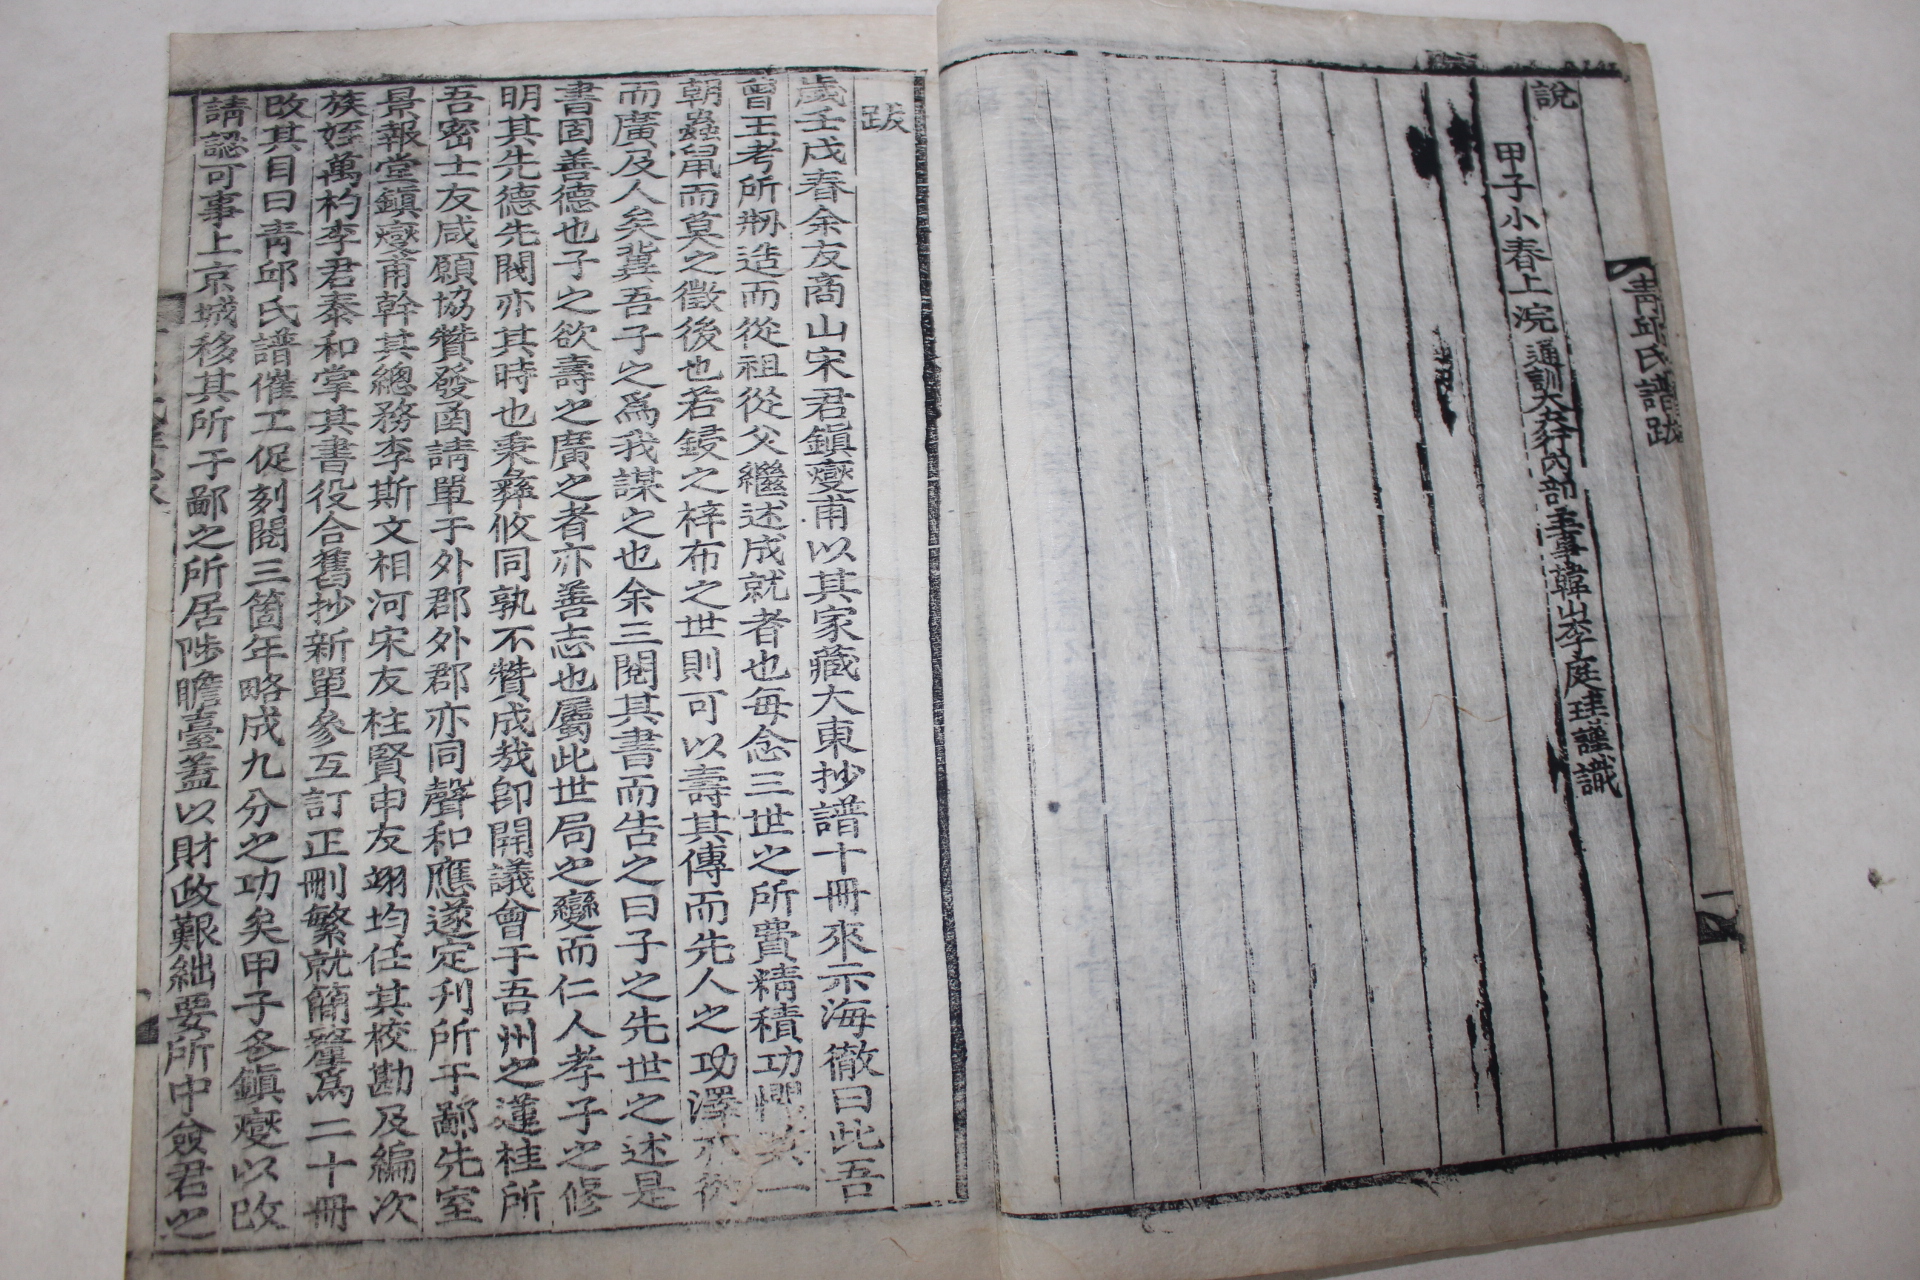 青邱氏譜跋
一
說
甲子小春上浣通訓大夫行內部主事韓山李庭珪謹識
跋
歲壬戌春余友商山宋君鎭燮甫以其家藏大東抄譜十冊來示海徹曰此吾
曾王考所刱造而從祖從父繼述成就者也每念三世之所費精積功懼其一
朝蟲鼠而莫之徵後也若鋟之梓布之世則可以壽其傳而先人之功澤
而廣及人矣冀吾子之爲我謀之也余三閱其書而告之曰子之先世之述是
書固善德也子之欲壽之廣之者亦善志也屬此世局之變而仁人孝子之修
明其先德先閥亦其時也秉彝攸同孰不贊成哉卽開議會于吾州之蓮桂所
吾密士友咸願協贊發函請單于外郡外郡亦同聲和應遂定刋所于鄙先室
景報堂鎭燮甫幹其總務李斯文相河宋友柱賢申友翊均任其校勘及編次
族姪萬杓李君泰和掌其書役合舊抄新單參互訂正刪繁就簡釐爲二十冊
改其目曰靑邱氏譜催工促刻閱三箇年略成九分之功矣甲子冬鎭燮以改
請認可事上京城移其所于鄙之所居陟瞻臺蓋以財政艱絀要所中僉君之